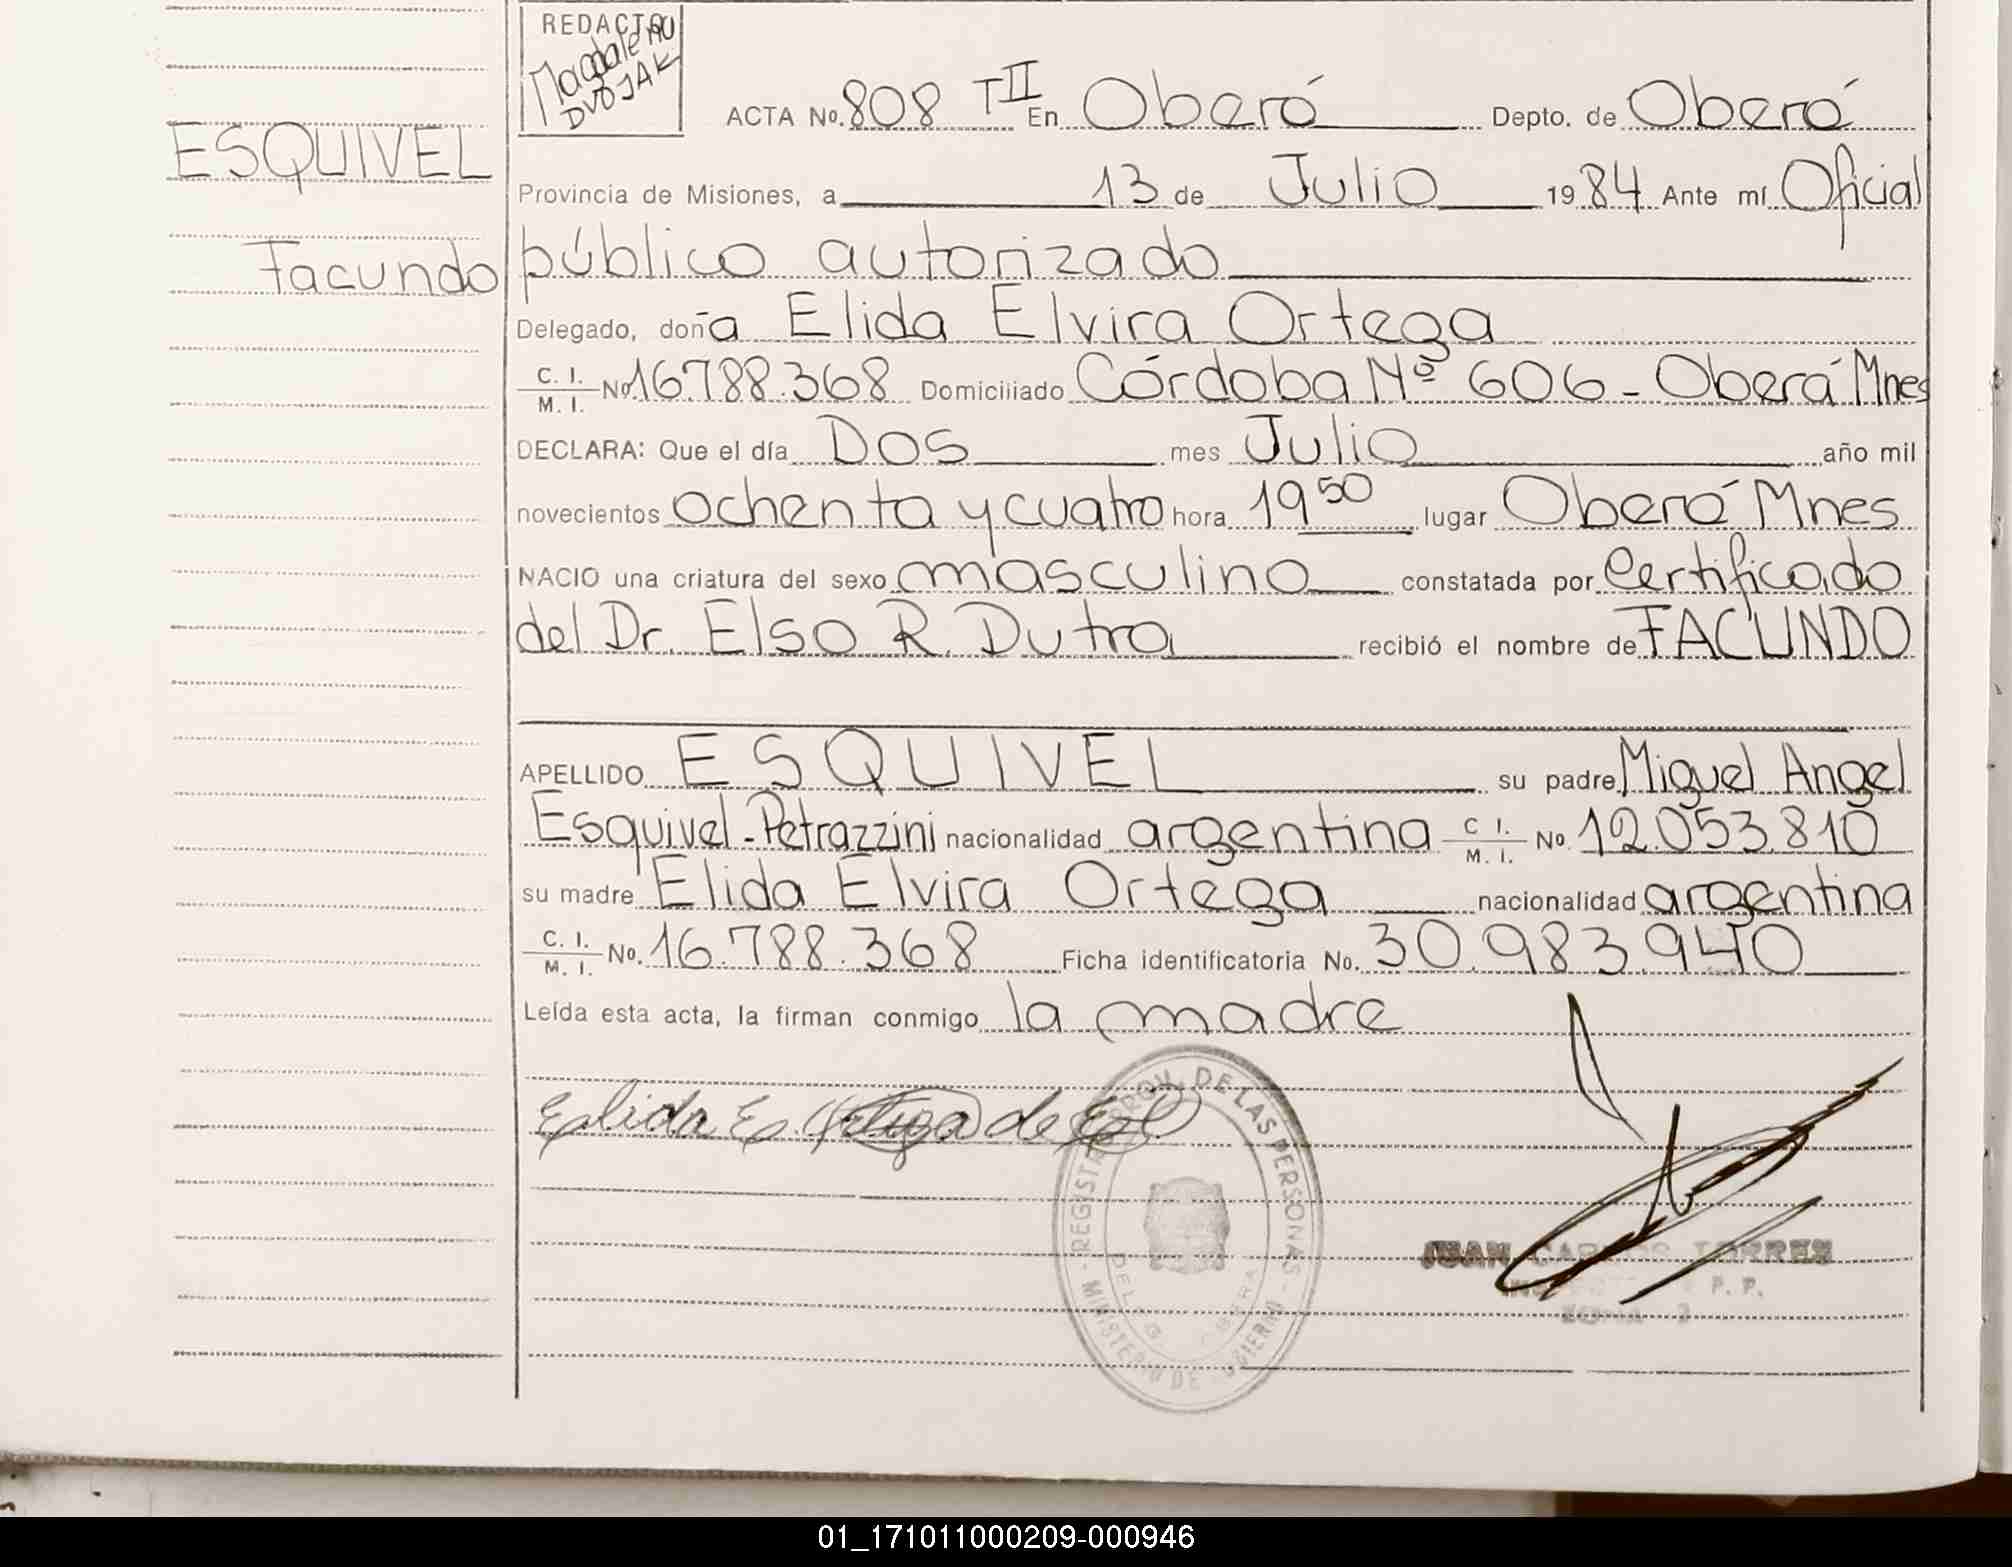 REDACTO
Magdaleno
DVOJAK
ACTA No. 808 T II En Oberá Depto. de Oberá
ESQUIVEL
Facundo
Provincia de Misiones, a 13 de Julio 1984 Ante mí Oficial
público autorizado
Delegado, doña Elida Elvira Ortega
C. I. M. I. No. 16.788.368 Domiciliado Córdoba Nº 606 - Oberá Mnes
DECLARA: Que el día Dos mes Julio año mil
novecientos ochenta y cuatro hora 19 50 lugar Oberá Mnes
NACIO una criatura del sexo masculino constatada por Certificado
del Dr. Elso R. Dutra recibió el nombre de FACUNDO
APELLIDO ESQUIVEL su padre Miguel Angel
Esquivel - Petrazzini nacionalidad argentina C. I. M. I. No. 12.053.810
su madre Elida Elvira Ortega nacionalidad argentina
C. I. M. I. No. 16.788.368 Ficha identificatoria No. 30.983.940
Leída esta acta, la firman conmigo la madre
Elida E. Ortega de
REGISTRO PROV. DE LAS PERSONAS
DELEG. OBERA
MINISTERIO DE GOBIERNO
JUAN CARLOS TORRES
P. P.
ZONA 2
01_171011000209-000946